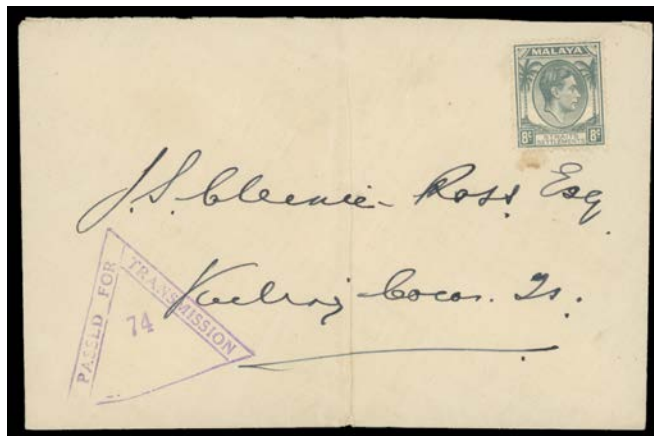 MALAYA
8c STRAITS SETTLEMENTS 8c
J.S. Clunie-Ross Esq
Keeling Cocos. Is.
PASSED FOR TRANSMISSION
74